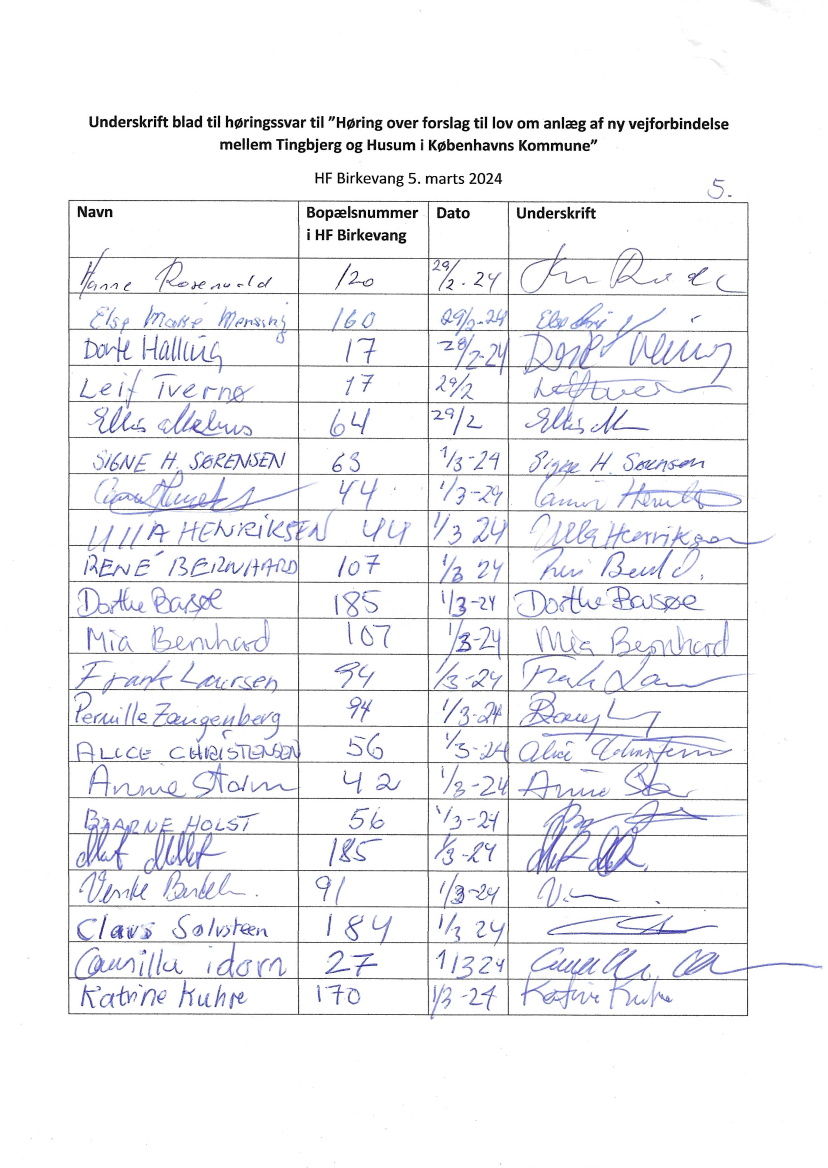 Underskrift blad til høringssvar til ”Høring over forslag til lov om anlæg af ny vejforbindelse
mellem Tingbjerg og Husum i Københavns Kommune”
HF Birkevang 5. marts 2024
5.
Navn Bopælsnummer i HF Birkevang Dato Underskrift
Hanne Rosenvald 120 29/2-24
Else Marie Mensing 160 29/2-24 Else
Dorte Halling 17 29/2-24 Dorte Halling
Leif Tvernø 17 29/2
Ellis 64 29/2 Ellis
SIGNE H. SØRENSEN 63 1/3-24 Signe H. Sørensen
44 1/3-24
ULLA HENRIKSEN 44 1/3 24 Ulla Henriksen
RENÉ BERNHARD 107 1/3 24
Dorthe Basøe 185 1/3-24 Dorthe Basøe
Mia Bernhard 107 1/3-24 Mia Bernhard
Frank Laursen 94 1/3-24 Frank
Pernille Zangenberg 94 1/3-24
ALICE CHRISTENSEN 56 1/3-24 Alice Christensen
Annie Storm 42 1/3-24 Annie
BJARNE HOLST 56 1/3-24
185 1/3-24
91 1/3-24
Claus Sølvsteen 184 1/3 24
Camilla idorn 27 1/3 24
Katrine Kuhre 170 1/3-24 Katrine Kuhre